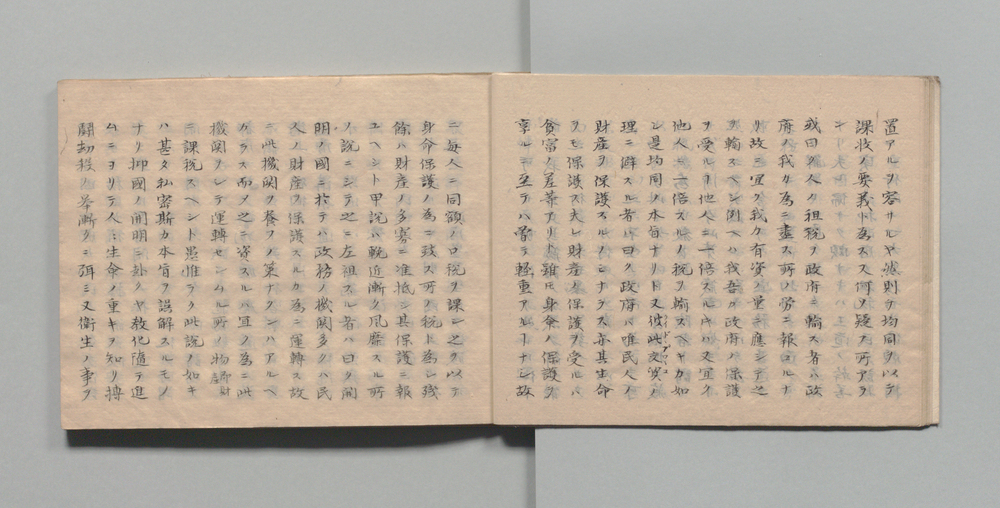 置アルヲ容サルヤ然則チ均同ヲ以テ
課收ノ要義ト為スス何ノ疑フ所アラ
ン
或曰ク人ノ租税ヲ政府ニ輸ス者ハ政
府ノ我カ為ニ盡ス所ノ労ニ報ユルナ
リ故ニ宜ク我カ有資ノ量ニ應シテ之
ヲ輸スヘシ例ヘハ我吾カ政府ノ保護
ヲ受ルヿ他人ニ一倍スルキハ又宜ク
他人ニ一倍スルノ税ヲ輸スヘキカ如
シ是均同ノ本旨ナリト又彼此交資ノ
理ニ僻スル者ハ曰ク政府ハ唯民人ノ
財産ヲ保護スルノミナラス亦其生命
ヲモ保護ス夫レ財産ノ保護ヲ受ルハ
貧富ノ差等アリト雖モ身命ノ保護ヲ
享ルニ至テハ曽テ軽重アルヿナシ故
ニ毎人ニ同額ノ口税ヲ課シ之ヲ以テ
身命保護ノ為ニ致ス所ノ税ト為シ残
餘ハ財産ノ多寡ニ准抵シ其保護ニ報
ユヘシト甲説ハ輓近漸ク風靡スル所
ノ説ニシテ之ニ左袒スル者ハ曰ク開
明ノ國ニ於テハ政務ノ機関多クハ民
人ノ財産ヲ保護スルカ為ニ運轉ス故
ニ此機関ヲ養フノ策ナクンハアルヘ
カラス而メ之ニ資スルハ宜ク為ニ此
機関ヲシテ運轉センムル所ノ物財
ニ課税スヘシト愚惟ラク此説ノ如キ
ハ甚タ私密斯カ本旨ヲ誤解スルモノ
ナリ抑國ノ開明ニ赴クヤ教化隨テ進
ムニヨリテ人ミ生命ノ重キヲ知リ搏
鬪劫殺ノ挙漸クニ弭ミ又衛生ノ事ヲ